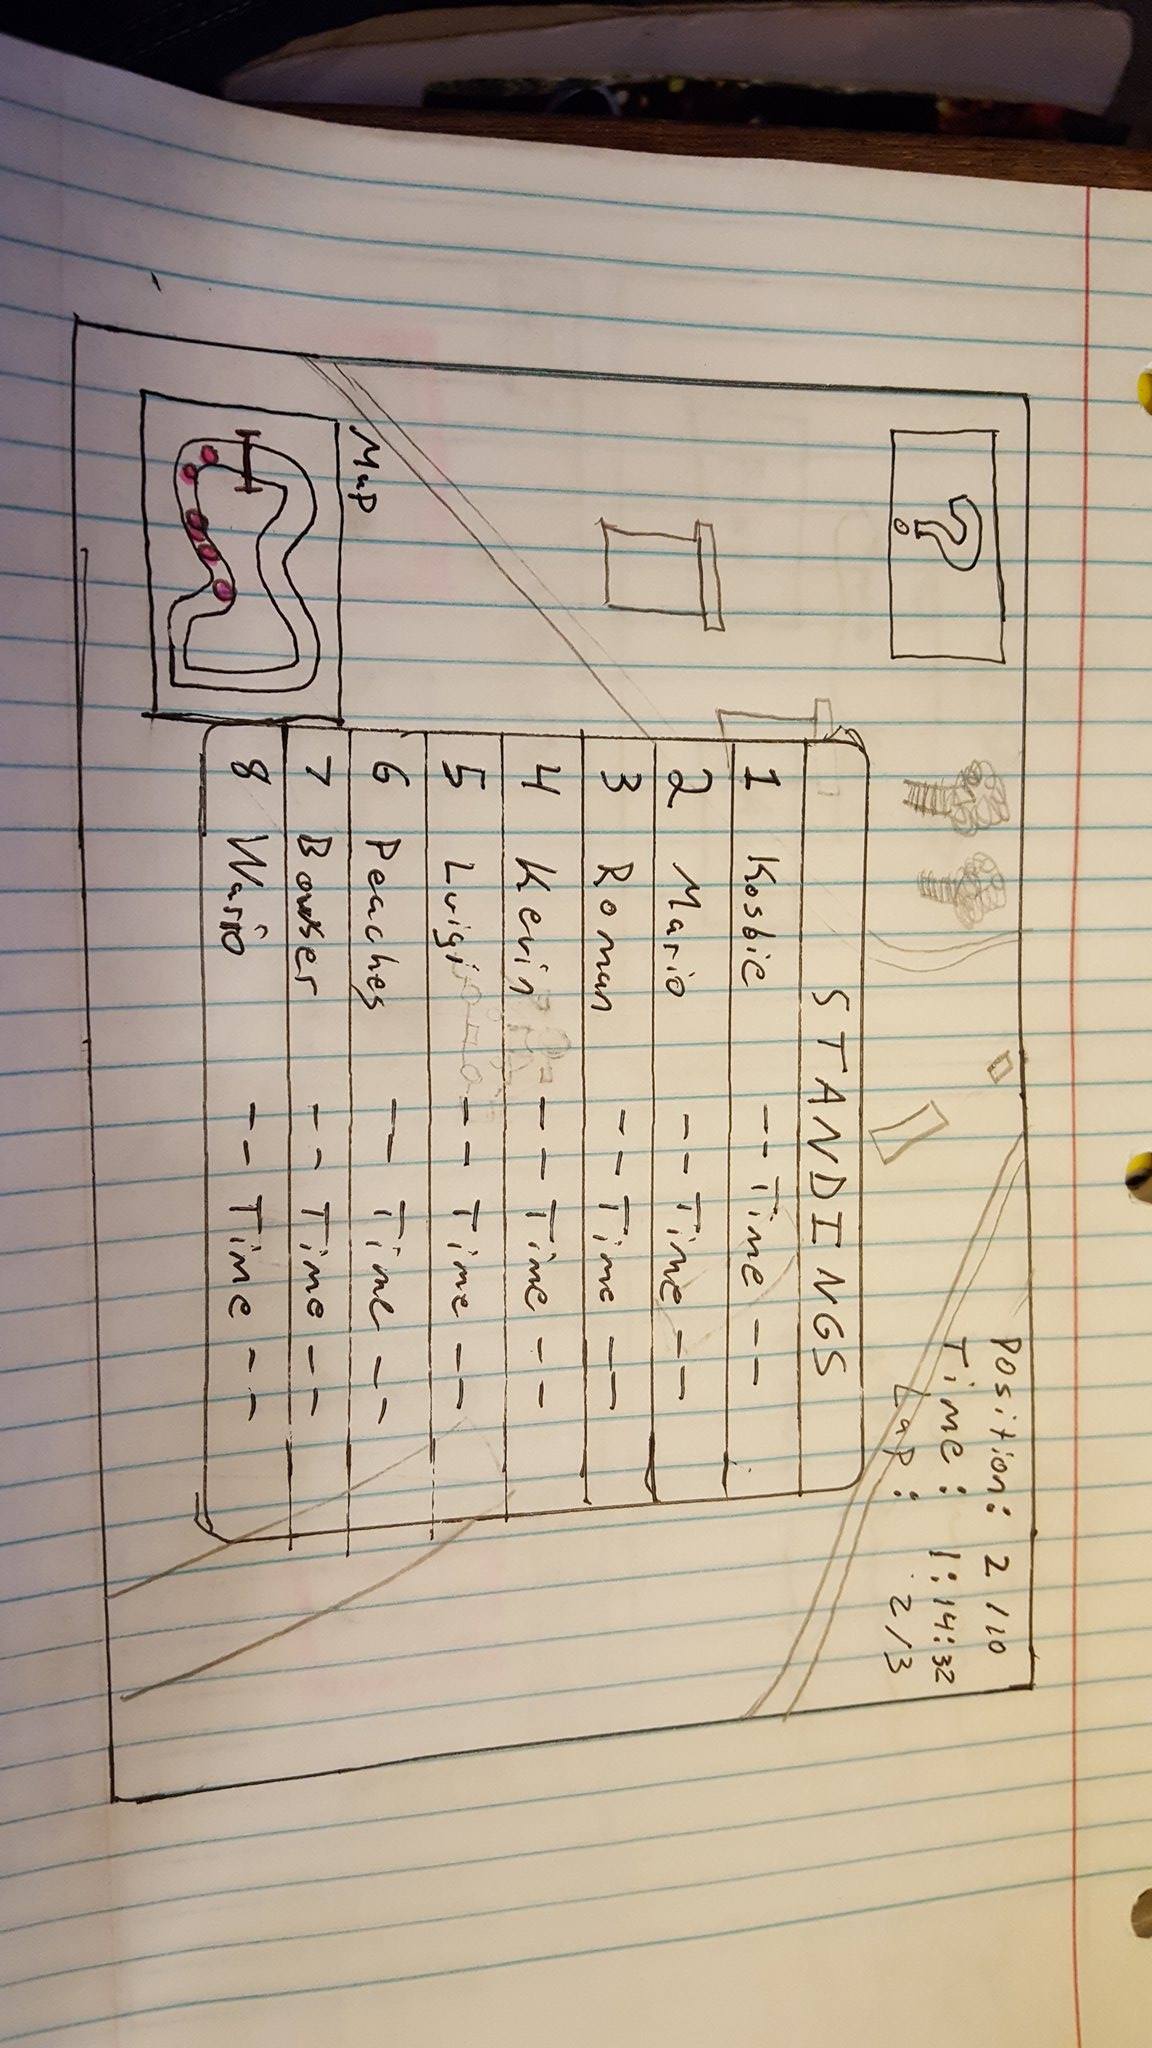 ?
Position: 2/10
Time: 1:14:32
Lap: 2/3
STANDINGS
1 Kosbie --Time--
2 Mario --Time--
3 Roman --Time--
4 Kevin --Time--
5 Luigi --Time--
6 Peaches --Time--
7 Bowser --Time--
8 Wario --Time--
Map